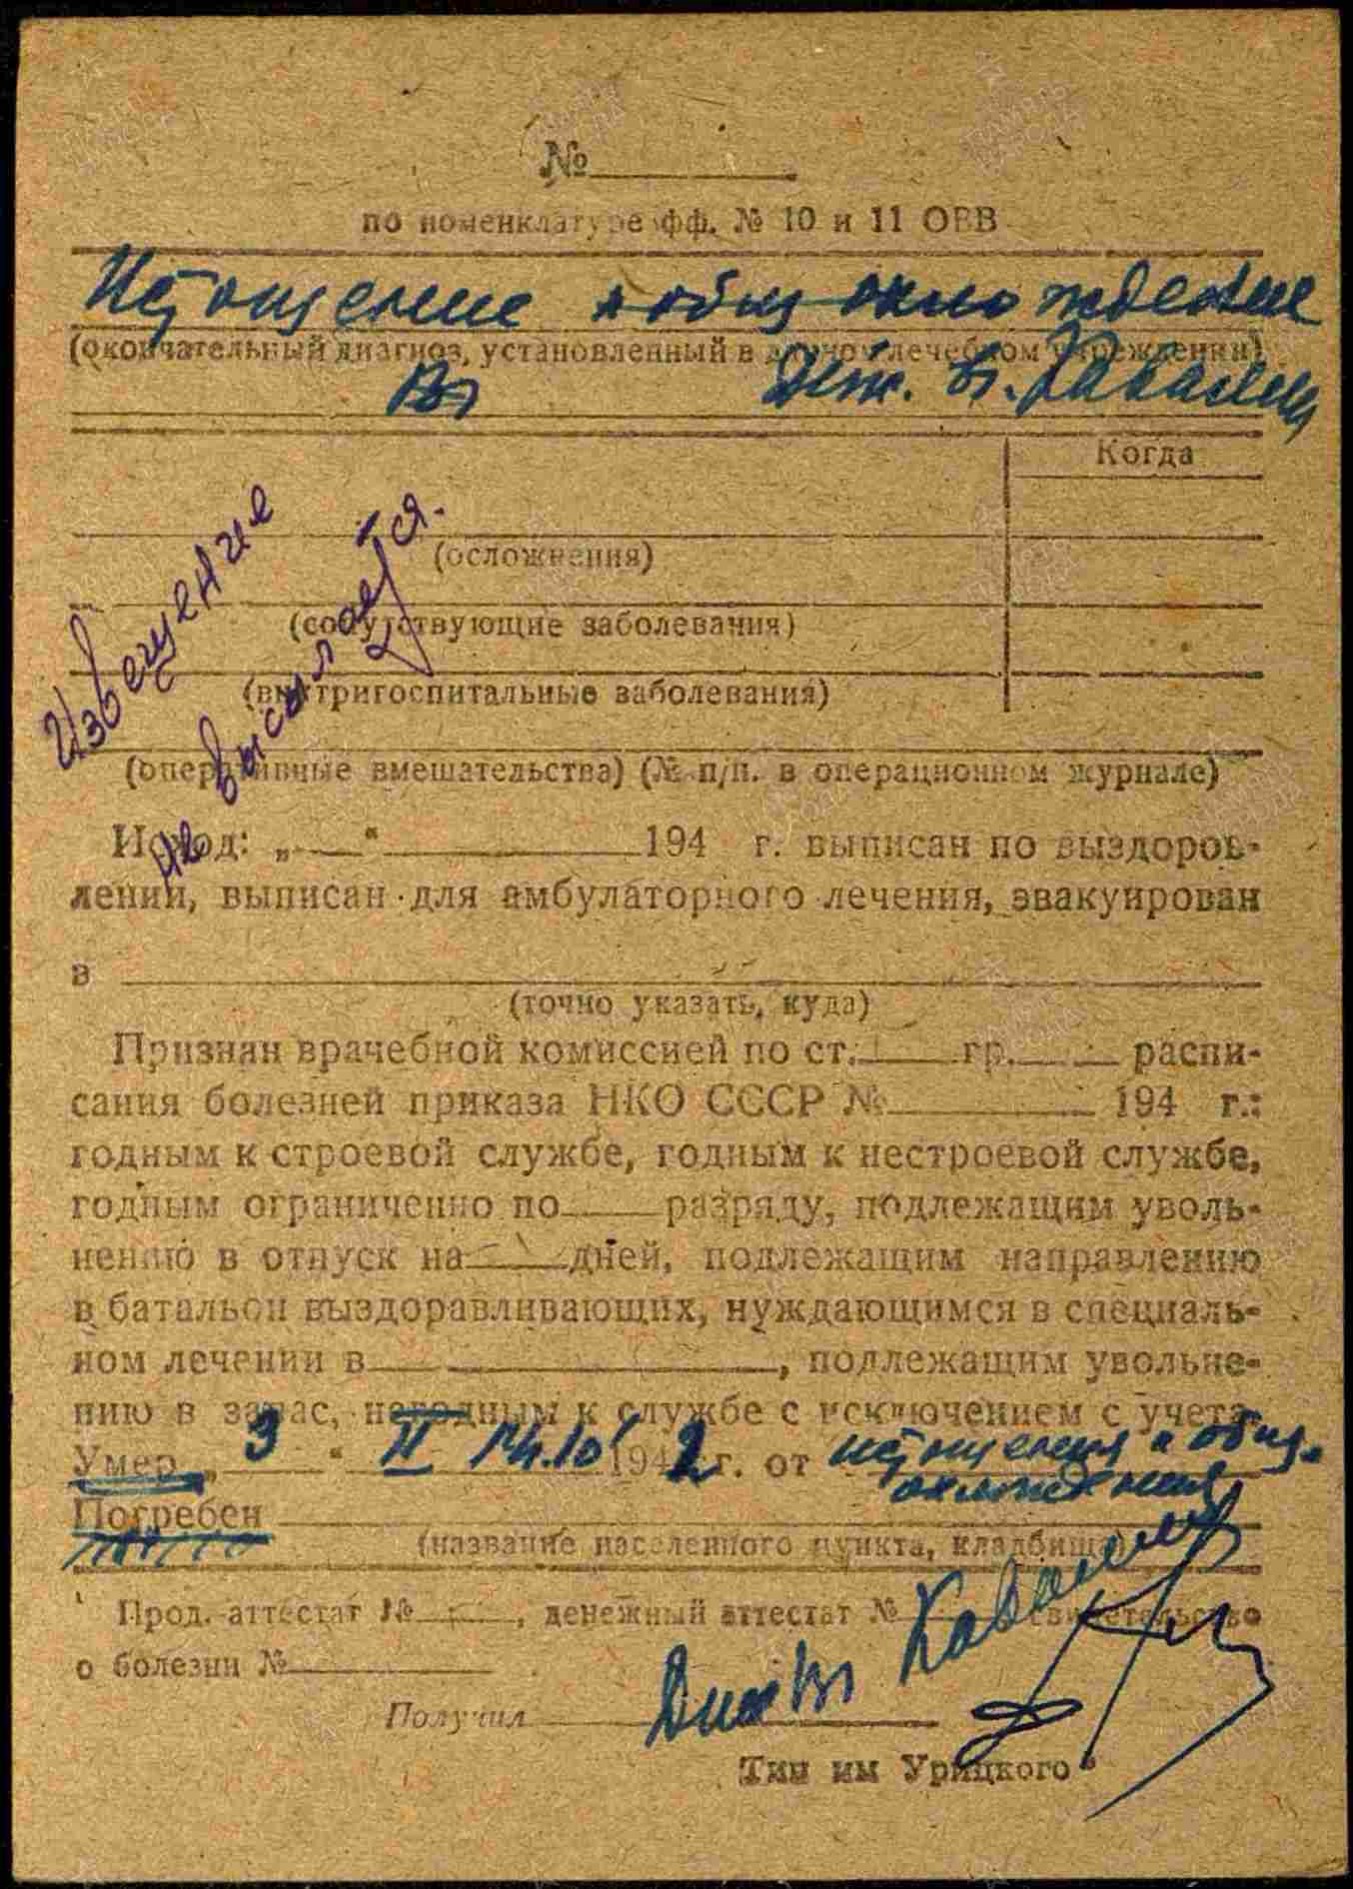 №
по номенклатуре фф. № 10 и 11 ОВВ
Истощение и общ охлождение
(окончательный диагноз, установленный в данном лечебном учреждении)
Вр Деж. в.
Когда
(осложнения)
(сопутствующие заболевания)
(внутригоспитальные заболевания)
(оперативные вмешательства) (№ п/п. в операционном журнале)
Извещение
не высылается.
Исход: „ “ 194 г. выписан по выздоров-
лении, выписан для амбулаторного лечения, эвакуирован
в
(точно указать, куда)
Признан врачебной комиссией по ст. гр. распи-
сания болезней приказа НКО СССР № 194 г.:
годным к строевой службе, годным к нестроевой службе,
годным ограниченно по разряду, подлежащим уволь-
нению в отпуск на дней, подлежащим направлению
в батальон выздоравливающих, нуждающимся в специаль-
ном лечении в , подлежащим увольне-
нию в запас, негодным к службе с исключением с учета
Умер „ 3 “ II 14.10 1942 г. от истощения и общ.
охлождения
Погребен
(название населенного пункта, кладбища)
Прод. аттестат № , денежный аттестат № свидетельство
о болезни №
Получил
Тип им Урицкого